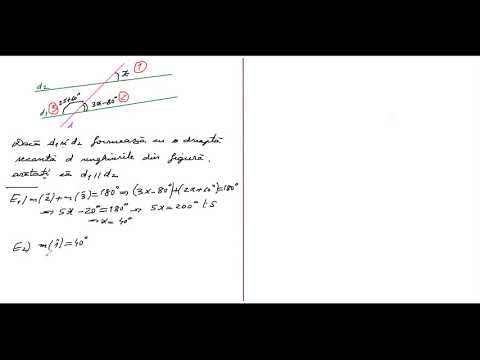 x ①
d₂
③ 2x+60° 3x-80° ②
d₁
d
Dacă d₁ și d₂ formează cu o dreaptă
secantă d unghiurile din figură,
arătați că d₁ ∥ d₂
E₁) m(2̂)+m(3̂)=180° ⇒ (3x-80°)+(2x+60°)=180°
⇒ 5x-20°=180° ⇒ 5x=200° |:5
⇒ x=40°
E₂) m(1̂)=40°